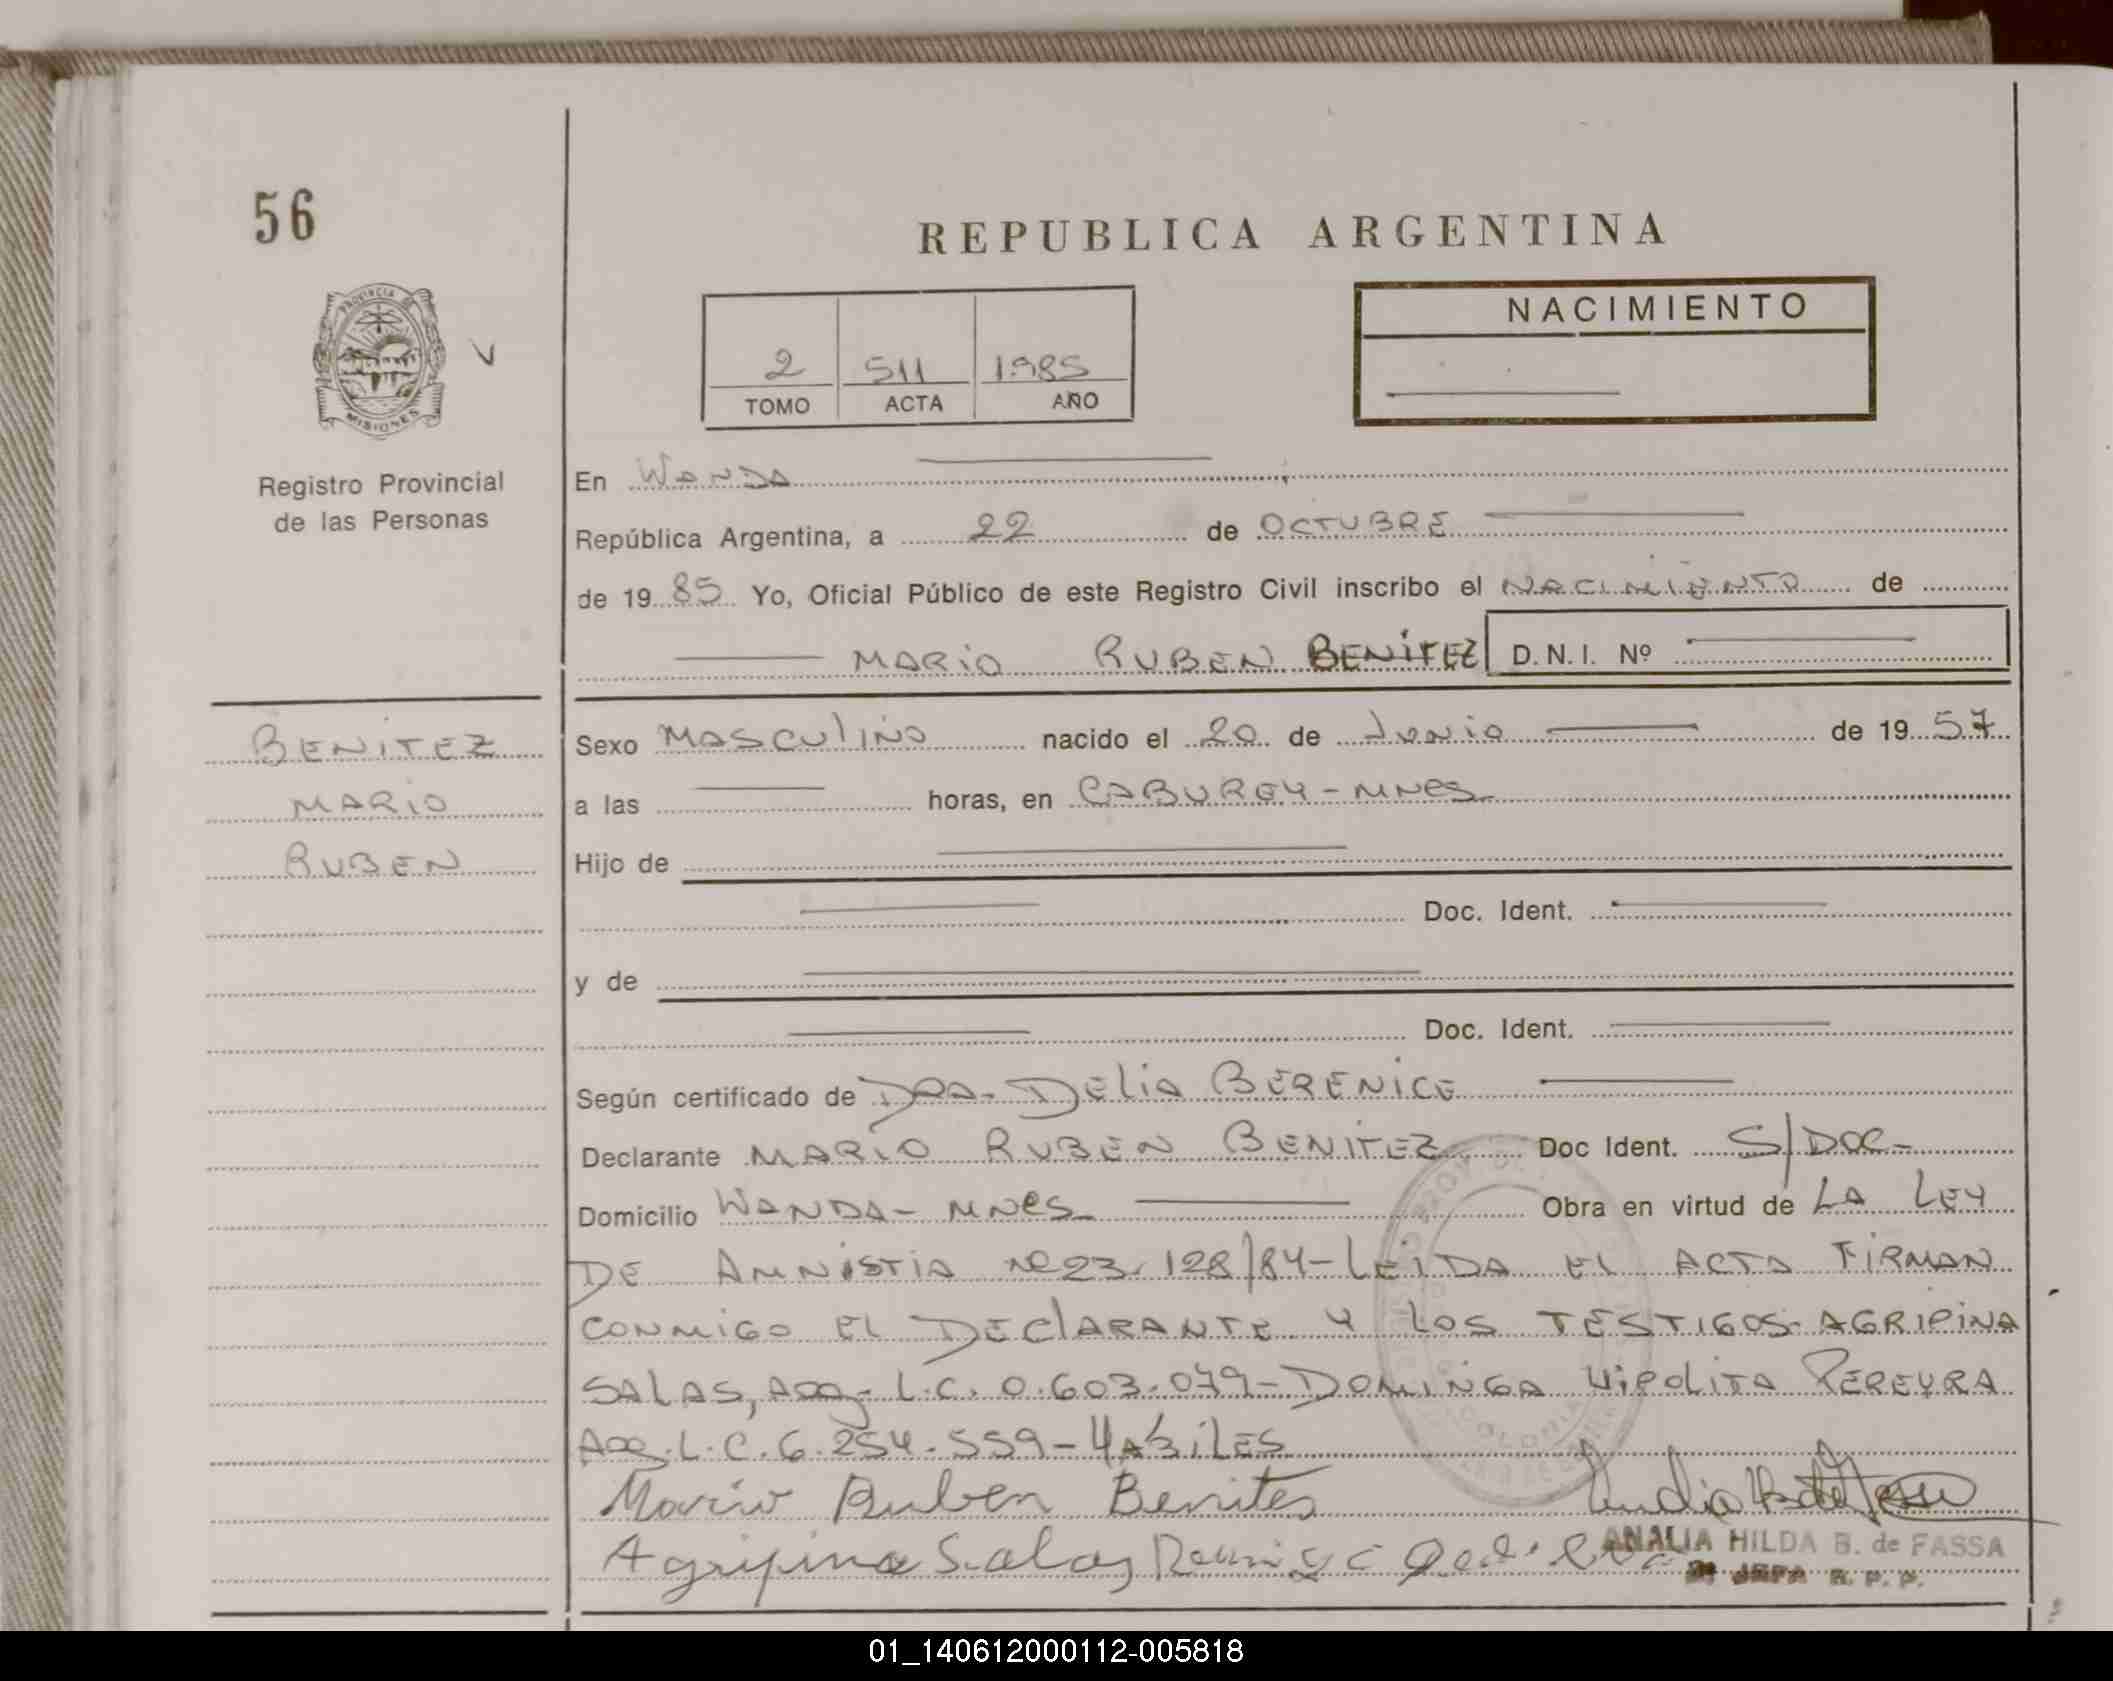 56
REPUBLICA ARGENTINA
PROVINCIA DE
MISIONES
Registro Provincial
de las Personas
2 511 1985
TOMO ACTA AÑO
NACIMIENTO
En WANDA
República Argentina, a 22 de OCTUBRE
de 1985 Yo, Oficial Público de este Registro Civil inscribo el NACIMIENTO de
MARIO RUBEN BENITEZ D.N.I. Nº
BENITEZ
MARIO
RUBEN
Sexo MASCULINO nacido el 20 de JUNIO de 1957
a las horas, en CABUREY - MNES
Hijo de
Doc. Ident.
y de
Doc. Ident.
Según certificado de DRA. DELIA BERENICE
Declarante MARIO RUBEN BENITEZ Doc Ident. S/DOC-
Domicilio WANDA - MNES Obra en virtud de LA LEY
DE AMNISTIA Nº 23.128/84 - LEIDA EL ACTA FIRMAN
CONMIGO EL DECLARANTE Y LOS TESTIGOS. AGRIPINA
SALAS, ARG. L.C. 0.603.079 - DOMINGA HIPOLITA PEREYRA
ARG. L.C. 6.254.559 - HABILES
Mario Ruben Benites
Agripina Salas
ANALIA HILDA B. de FASSA
JEFA R. P. P.
01_140612000112-005818